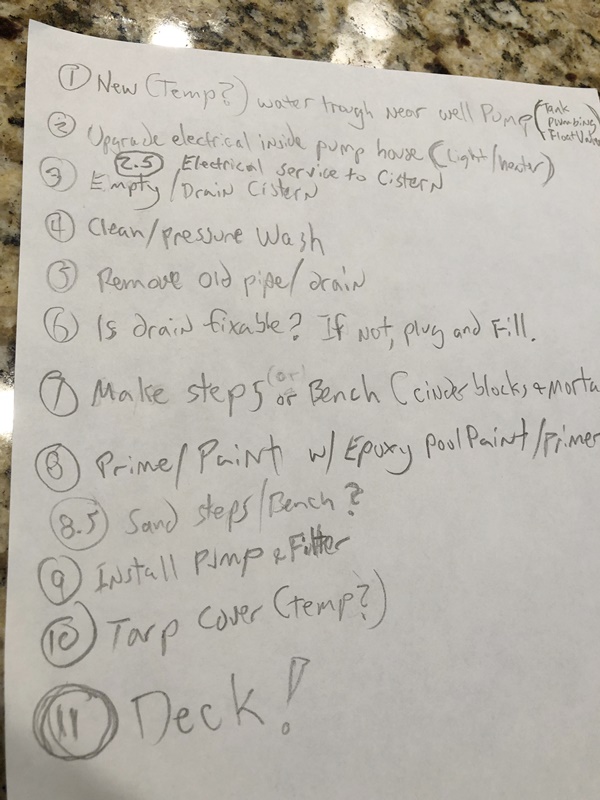 ① New (Temp?) water trough near well Pump (Tank
Plumbing
Float
② Upgrade electrical inside pump house (Light/heater)
2.5 Electrical service to Cistern
③ Empty/Drain Cistern
④ Clean/pressure Wash
⑤ Remove old pipe/drain
⑥ Is drain fixable? If Not, plug and Fill.
⑦ Make steps (or) or Bench (cinder blocks + Morta
⑧ Prime/Paint w/ Epoxy pool Paint/primer
8.5 Sand steps/Bench?
⑨ Install Pump & Filter
⑩ Tarp Cover (temp?)
⑪ Deck!